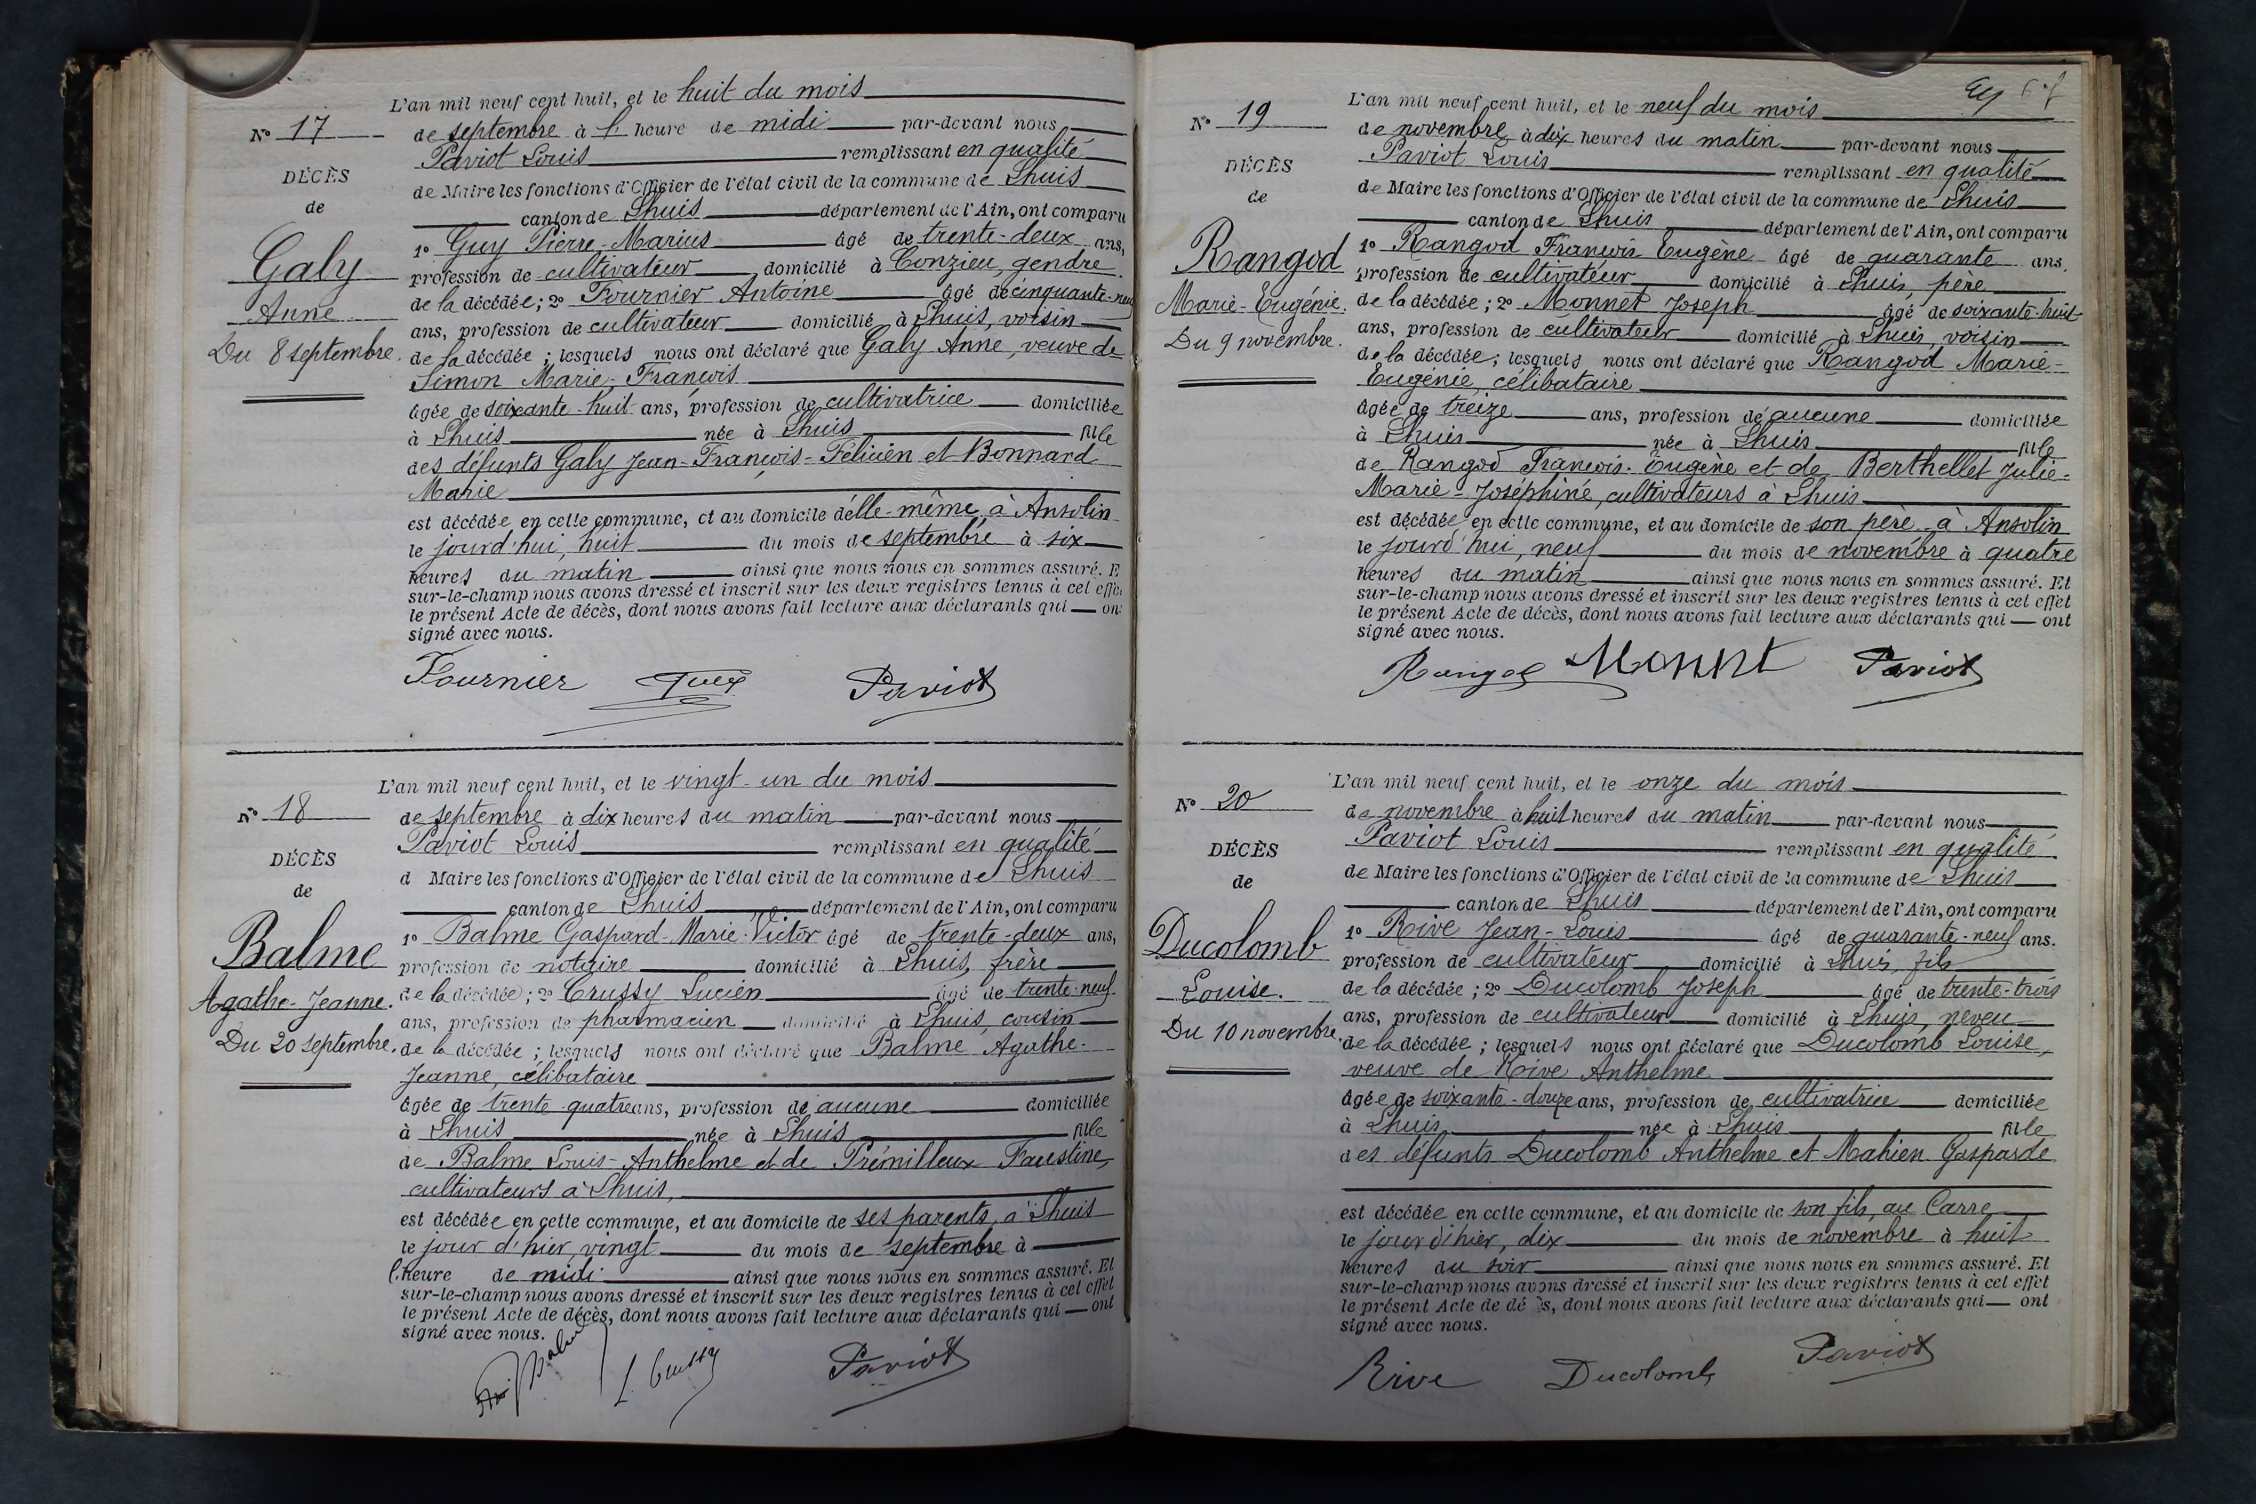 L'an mil neuf cent huit, et le huit du mois
N° 17
de septembre à l' heure de midi par-devant nous
Paviot Louis remplissant en qualité
DÉCÈS
de Maire les fonctions d'Officier de l'état civil de la commune de Lhuis
de
canton de Lhuis département de l'Ain, ont comparu
Galy
1° Guy Pierre-Marius âgé de trente-deux ans,
profession de cultivateur domicilié à Conzieu, gendre
Anne
de la décédée; 2° Fournier Antoine âgé de cinquante-neuf
ans, profession de cultivateur domicilié à Lhuis, voisin
Du 8 septembre.
de la décédée; lesquels nous ont déclaré que Galy Anne, veuve de
Simon Marie-François
âgée de soixante-huit ans, profession de cultivatrice domiciliée
à Lhuis née à Lhuis fille
des défunts Galy Jean-François-Félicien et Bonnard
Marie
est décédée en cette commune, et au domicile d'elle-même, à Ansolin
le jourd'hui, huit du mois de septembre à six
heures du matin ainsi que nous nous en sommes assuré. E
sur-le-champ nous avons dressé et inscrit sur les deux registres tenus à cet effe
le présent Acte de décès, dont nous avons fait lecture aux déclarants qui on
signé avec nous.
Fournier Paviot
L'an mil neuf cent huit, et le vingt-un du mois
N° 18
de septembre à dix heures du matin par-devant nous
Paviot Louis remplissant en qualité
DÉCÈS
d Maire les fonctions d'Officier de l'état civil de la commune de Lhuis
de
canton de Lhuis département de l'Ain, ont comparu
Balme
1° Balme Gaspard-Marie-Victor âgé de trente-deux ans,
profession de notaire domicilié à Lhuis, frère
Agathe-Jeanne.
de la décédée; 2° Crussy Lucien âgé de trente-neuf
ans, profession de pharmacien domicilié à Lhuis, cousin
Du 20 septembre.
de la décédée; lesquels nous ont déclaré que Balme Agathe-
Jeanne, célibataire
âgée de trente-quatre ans, profession de aucune domiciliée
à Lhuis née à Lhuis fille
de Balme Louis-Anthelme et de Prémilleux Faustine,
cultivateurs à Lhuis,
est décédée en cette commune, et au domicile de ses parents, à Lhuis
le jour d'hier, vingt du mois de septembre à
l'heure de midi ainsi que nous nous en sommes assuré. Et
sur-le-champ nous avons dressé et inscrit sur les deux registres tenus à cet effet
le présent Acte de décès, dont nous avons fait lecture aux déclarants qui ont
signé avec nous.
Balme L. Crussy Paviot
L'an mil neuf cent huit, et le neuf du mois
N° 19
de novembre à dix heures du matin par-devant nous
Paviot Louis remplissant en qualité
DÉCÈS
de Maire les fonctions d'Officier de l'état civil de la commune de Lhuis
de
canton de Lhuis département de l'Ain, ont comparu
Rangod
1° Rangod François Eugène âgé de quarante ans,
profession de cultivateur domicilié à Lhuis, père
Marie-Eugénie.
de la décédée; 2° Monnet Joseph âgé de soixante-huit
ans, profession de cultivateur domicilié à Lhuis, voisin
Du 9 novembre.
de la décédée; lesquels nous ont déclaré que Rangod Marie-
Eugénie, célibataire
âgée de treize ans, profession de aucune domiciliée
à Lhuis née à Lhuis fille
de Rangod François-Eugène et de Berthellet Julie-
Marie-Joséphine, cultivateurs à Lhuis
est décédée en cette commune, et au domicile de son père, à Ansolin
le jourd'hui, neuf du mois de novembre à quatre
heures du matin ainsi que nous nous en sommes assuré. Et
sur-le-champ nous avons dressé et inscrit sur les deux registres tenus à cet effet
le présent Acte de décès, dont nous avons fait lecture aux déclarants qui ont
signé avec nous.
Rangod Monnet Paviot
L'an mil neuf cent huit, et le onze du mois
N° 20
de novembre à huit heures du matin par-devant nous
Paviot Louis remplissant en qualité
DÉCÈS
de Maire les fonctions d'Officier de l'état civil de la commune de Lhuis
de
canton de Lhuis département de l'Ain, ont comparu
Ducolomb
1° Rive Jean-Louis âgé de quarante-neuf ans.
profession de cultivateur domicilié à Lhuis, fils
Louise.
de la décédée; 2° Ducolomb Joseph âgé de trente-trois
ans, profession de cultivateur domicilié à Lhuis, neveu
Du 10 novembre.
de la décédée; lesquels nous ont déclaré que Ducolomb Louise,
veuve de Rive Anthelme
âgée de soixante-douze ans, profession de cultivatrice domiciliée
à Lhuis née à Lhuis fille
des défunts Ducolomb Anthelme et Mahien Gasparde
est décédée en cette commune, et au domicile de son fils, au Carre
le jour d'hier, dix du mois de novembre à huit
heures du soir ainsi que nous nous en sommes assuré. Et
sur-le-champ nous avons dressé et inscrit sur les deux registres tenus à cet effet
le présent Acte de dé s, dont nous avons fait lecture aux déclarants qui ont
signé avec nous.
Rive Ducolomb Paviot